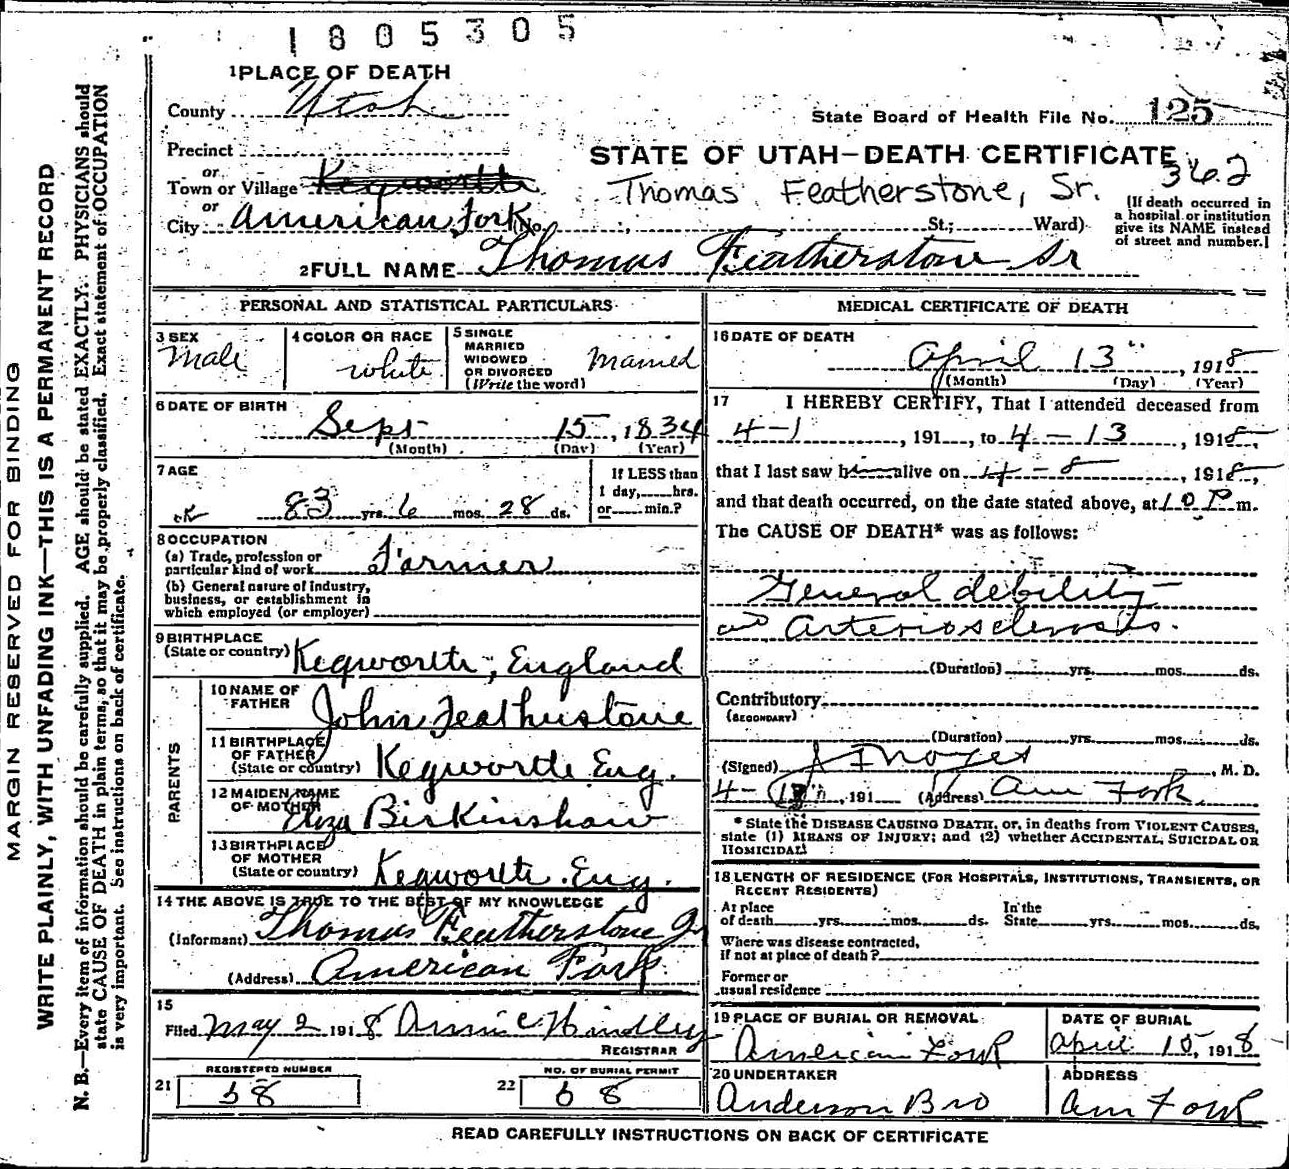 1805305
1 PLACE OF DEATH
County Utah
State Board of Health File No. 125
Precinct
STATE OF UTAH—DEATH CERTIFICATE
362
or
Town or Village Kegworth
Thomas Featherstone, Sr.
or
City American Fork (No. St.; Ward)
(If death occurred in
a hospital or institution
give its NAME instead
of street and number.)
2 FULL NAME Thomas Featherstone Sr
PERSONAL AND STATISTICAL PARTICULARS
3 SEX
Male
4 COLOR OR RACE
White
5 SINGLE
MARRIED
WIDOWED
OR DIVORCED
(Write the word)
Married
6 DATE OF BIRTH
Sept 15, 1834
(Month) (Day) (Year)
7 AGE
83 yrs. 6 mos. 28 ds.
If LESS than
1 day, hrs.
or min.?
8 OCCUPATION
(a) Trade, profession or
particular kind of work Farmer
(b) General nature of industry,
business, or establishment in
which employed (or employer)
9 BIRTHPLACE
(State or country) Kegworth, England
PARENTS
10 NAME OF
FATHER John Featherstone
11 BIRTHPLACE
OF FATHER
(State or country) Kegworth Eng.
12 MAIDEN NAME
OF MOTHER Eliza Birkinshaw
13 BIRTHPLACE
OF MOTHER
(State or country) Kegworth. Eng.
14 THE ABOVE IS TRUE TO THE BEST OF MY KNOWLEDGE
(Informant) Thomas Featherstone Jr
(Address) American Fork
15
Filed May 2 1918 Annie C Hindley
REGISTRAR
REGISTERED NUMBER
21 58
NO. OF BURIAL PERMIT
22 68
MEDICAL CERTIFICATE OF DEATH
16 DATE OF DEATH
April 13", 1918
(Month) (Day) (Year)
17 I HEREBY CERTIFY, That I attended deceased from
4-1, 191, to 4-13, 1918,
that I last saw him alive on 4-8, 1918,
and that death occurred, on the date stated above, at 10 P m.
The CAUSE OF DEATH* was as follows:
General debility
and Arteriosclerosis.
(Duration) yrs. mos. ds.
Contributory
(SECONDARY)
(Duration) yrs. mos. ds.
(Signed) Noyes, M. D.
4-, 191 (Address) Am Fork
* State the DISEASE CAUSING DEATH, or, in deaths from VIOLENT CAUSES,
state (1) MEANS OF INJURY; and (2) whether ACCIDENTAL, SUICIDAL OR
HOMICIDAL.
18 LENGTH OF RESIDENCE (FOR HOSPITALS, INSTITUTIONS, TRANSIENTS, OR
RECENT RESIDENTS)
At place
of death yrs. mos. ds.
In the
State yrs. mos. ds.
Where was disease contracted,
if not at place of death?
Former or
usual residence
19 PLACE OF BURIAL OR REMOVAL
American Fork
DATE OF BURIAL
April 15, 1918
20 UNDERTAKER
Anderson Bro
ADDRESS
Am Fork
READ CAREFULLY INSTRUCTIONS ON BACK OF CERTIFICATE
MARGIN RESERVED FOR BINDING
WRITE PLAINLY, WITH UNFADING INK—THIS IS A PERMANENT RECORD
N. B.—Every item of information should be carefully supplied. AGE should be stated EXACTLY. PHYSICIANS should
state CAUSE OF DEATH in plain terms, so that it may be properly classified. Exact statement of OCCUPATION
is very important. See instructions on back of certificate.